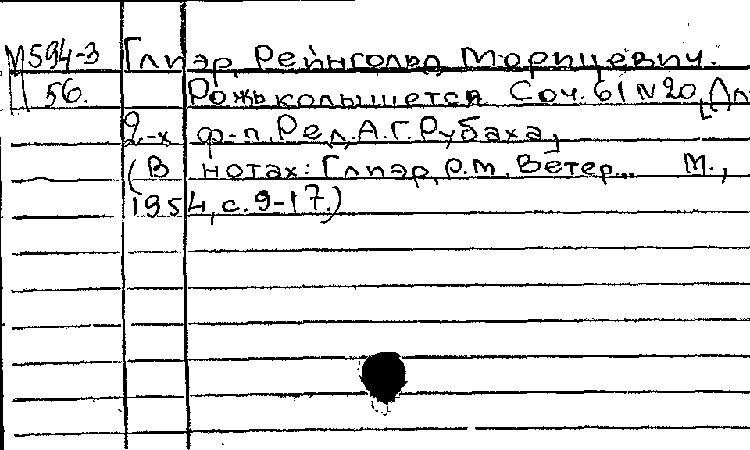 М594-3 Глиэр, Рейнгольд Морицевич.
П 56. Рожь колышется Соч. 61 N 20, [Дл
2-х ф-п. Ред. А.Г. Рубаха,
(В нотах: Глиэр, Р.М. Ветер... М.,
1954, с. 9-17.)